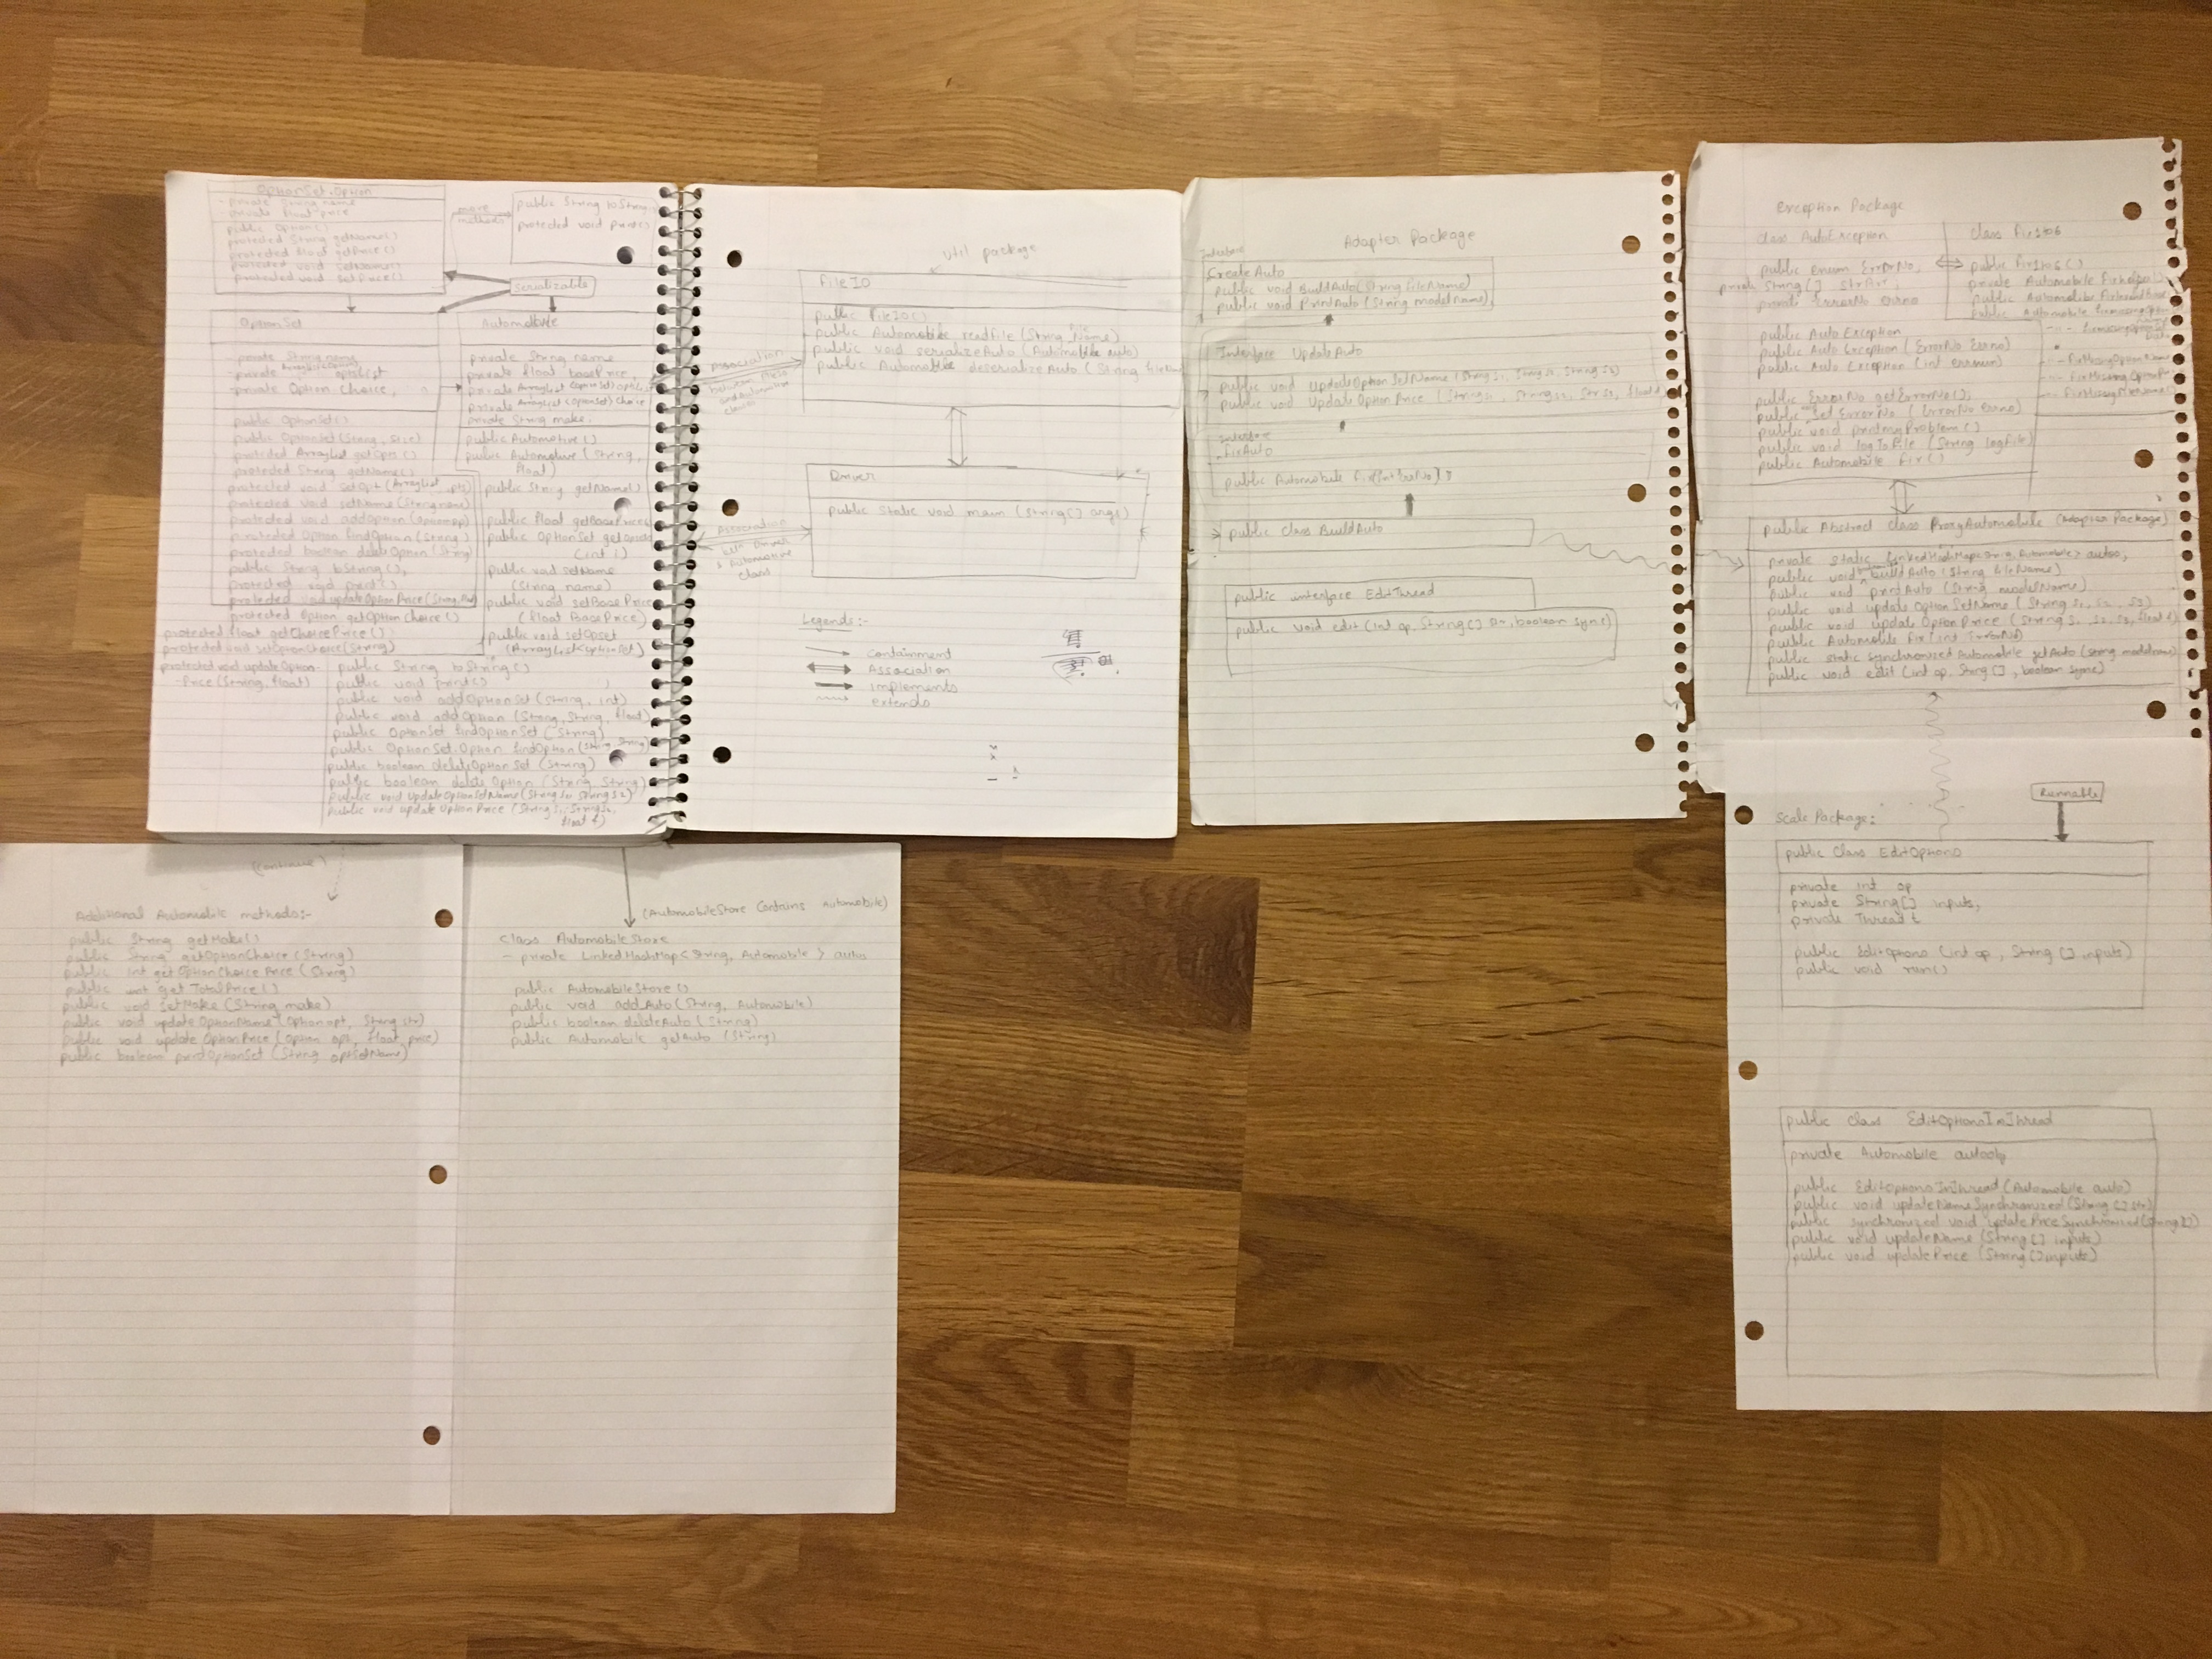 OptionSet.Option
- private String name
- private float price
public Option()
protected String getName()
protected float getPrice()
protected void setName()
protected void setPrice()
more
methods
public String toString()
protected void print()
Serializable
OptionSet
- private String name
- private ArrayList<Option> optList
- private Option Choice,
public OptionSet()
public OptionSet(String, size)
protected ArrayList getOpts()
protected String getName()
protected void setOpt(ArrayList opts)
protected void setName(String name)
protected void addOption(option opt)
protected Option findOption(String)
protected boolean deleteOption(String)
public String toString(),
protected void print()
protected void updateOptionPrice(String,
protected Option getOptionChoice()
protected float getChoicePrice()
protected void setOptionChoice(String)
protected void updateOption-
-Price(String, float)
Automobile
private String name
private float basePrice,
private ArrayList<OptionSet> optset
private ArrayList<OptionSet> Choice
private String make.
public Automotive()
public Automotive(String,
float)
public String getName()
public float getBasePrice
public OptionSet getOpset
(int i)
public void setName
(String name)
public void setBasePrice
(float BasePrice)
public void setOpset
(ArrayList<optionSet)
public String toString()
public void print()
public void addOptionSet(String, int)
public void addOption (String, String, float)
public OptionSet findOptionSet(String)
public OptionSet.Option findOption(String, String)
public boolean deleteOptionSet (String)
public boolean delete Option (String, String)
public void updateOptionSetName(String s1, String s2)
public void updateOptionPrice (String s1, String s2,
float f)
Util package
FileIO
public FileIO()
public Automobile readfile (String Name)
public void serializeAuto (Automobile auto)
public Automobile deserializeAuto (String fileName
Association
between FileIO
and Automotive
class
Driver
public static void main (String[] args)
Association
betn Driver
& Automotive
class
Legends:-
Containment
Association
implements
extends
Adapter Package
Interface
CreateAuto
public void BuildAuto(String fileName)
public void PrintAuto (String modelName),
Interface UpdateAuto
public void updateOptionSetName (String s1, String s2, String s3)
public void updateOptionPrice (String s1, String s2, Str s3, float f)
Interface
FixAuto
public Automobile fix(int ErrNo);
public class BuildAuto
public interface EditThread
public void edit (int op, String[] str, boolean sync)
Exception Package
class AutoException
public enum ErrorNo,
private String[] strErr,
private ErrorNo Errno
public Auto Exception
public Auto Exception (ErrorNo Errno)
public Auto Exception (int errnum)
public ErrorNo getErrorNo();
public set ErrorNo (ErrorNo Errno)
public void printmyProblem()
public void logToFile (String logFile)
public Automobile Fix()
class Fix1to6
public Fix1to6()
private Automobile
public Automobile
public Automobile
-- FixMissingOptionName
public Abstract class ProxyAutomobile (Adapter Package)
private static LinkedHashMap<String, Automobile> autos,
public void buildAuto (String fileName)
public void printAuto (String modelName)
public void updateOptionSetName (String s1, s2, s3)
public void updateOptionPrice (String s1, s2, s3, float f)
public Automobile Fix (int ErrorNo)
public static synchronized Automobile getAuto (String modelname)
public void edit (int op, String[], boolean sync)
Runnable
Scale Package:
public class EditOptions
private int op
private String[] inputs,
private Thread t
public EditOptions (int op, String [] inputs)
public void run()
public class EditOptionsInThread
private Automobile autoob
public EditOptionsInThread (Automobile auto)
public void updateNameSynchronized (String [] str)
public synchronized void updatePriceSynchronized (String [])
public void updateName (String [] inputs)
public void updatePrice (String [] inputs)
(Continue)
Additional Automobile methods:-
public String getMake()
public String getOptionChoice (String)
public int getOptionChoice Price (String)
public int get TotalPrice ()
public void setMake (String make)
public void updateOptionName (Option opt, String str)
public void updateOptionPrice (Option opt, float price)
public boolean printOptionSet (String optSetName)
(AutomobileStore Contains Automobile)
class AutomobileStore
- private LinkedHashMap<String, Automobile> autos
public AutomobileStore()
public void addAuto (String, Automobile)
public boolean deleteAuto (String)
public Automobile getAuto (String)